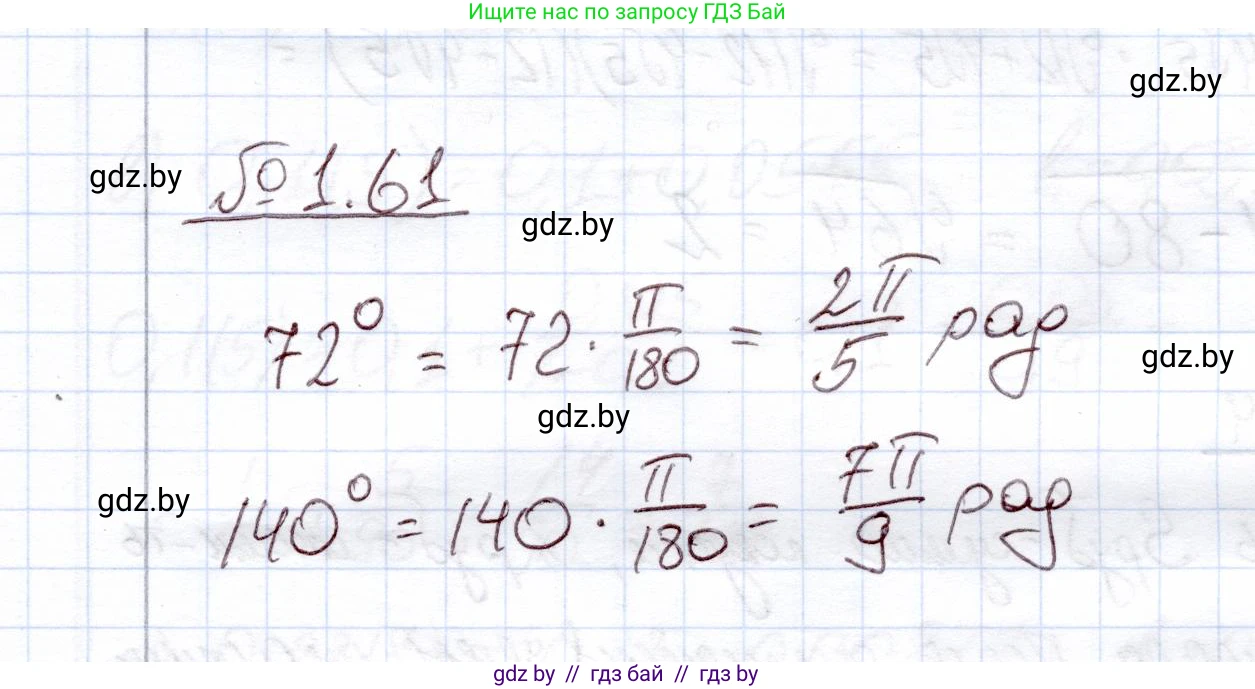 Ищите нас по запросу ГДЗ Бай
gdz.by
gdz.by
№ 1.61
gdz.by
72° = 72 · π/180 = 2π/5 рад
gdz.by
gdz.by
gdz.by
140° = 140 · π/180 = 7π/9 рад
gdz.by // гдз бай // гдз by